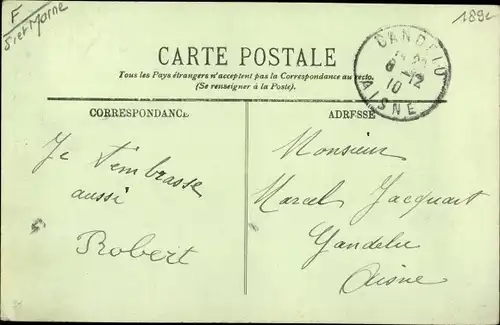 F
S et Marne
189
CARTE POSTALE
Tous les Pays étrangers n'acceptent pas la Correspondance au recto.
(Se renseigner à la Poste).
CORRESPONDANCE
ADRESSE
6 -12
10
AISNE
Je t'embrasse
aussi
Robert
Monsieur
Marcel Jacquart
Gandelu
Aisne